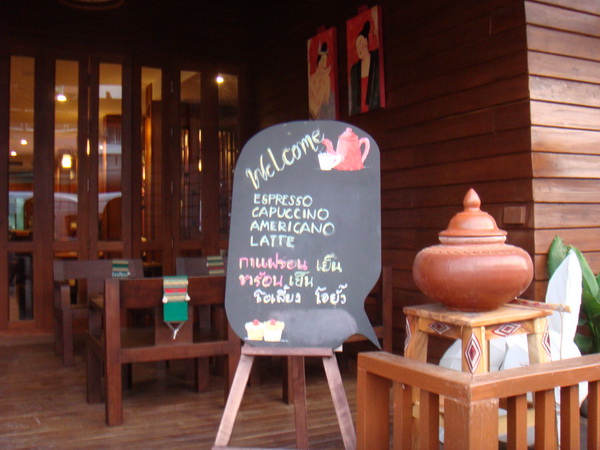 Welcome
ESPRESSO
CAPUCCINO
AMERICANO
LATTE
กาแฟร้อน เย็น
ชาร้อน เย็น
โอเลี้ยง โอยั๊ว